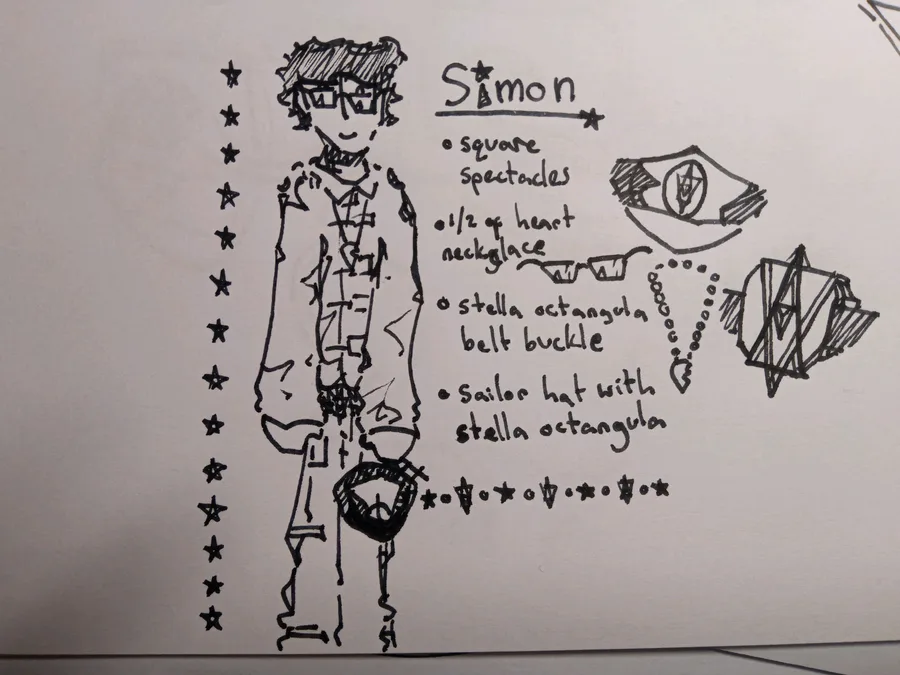 Simon
• square
spectacles
• 1/2 of heart
neckglace
• stella octangula
belt buckle
• sailor hat with
stella octangula